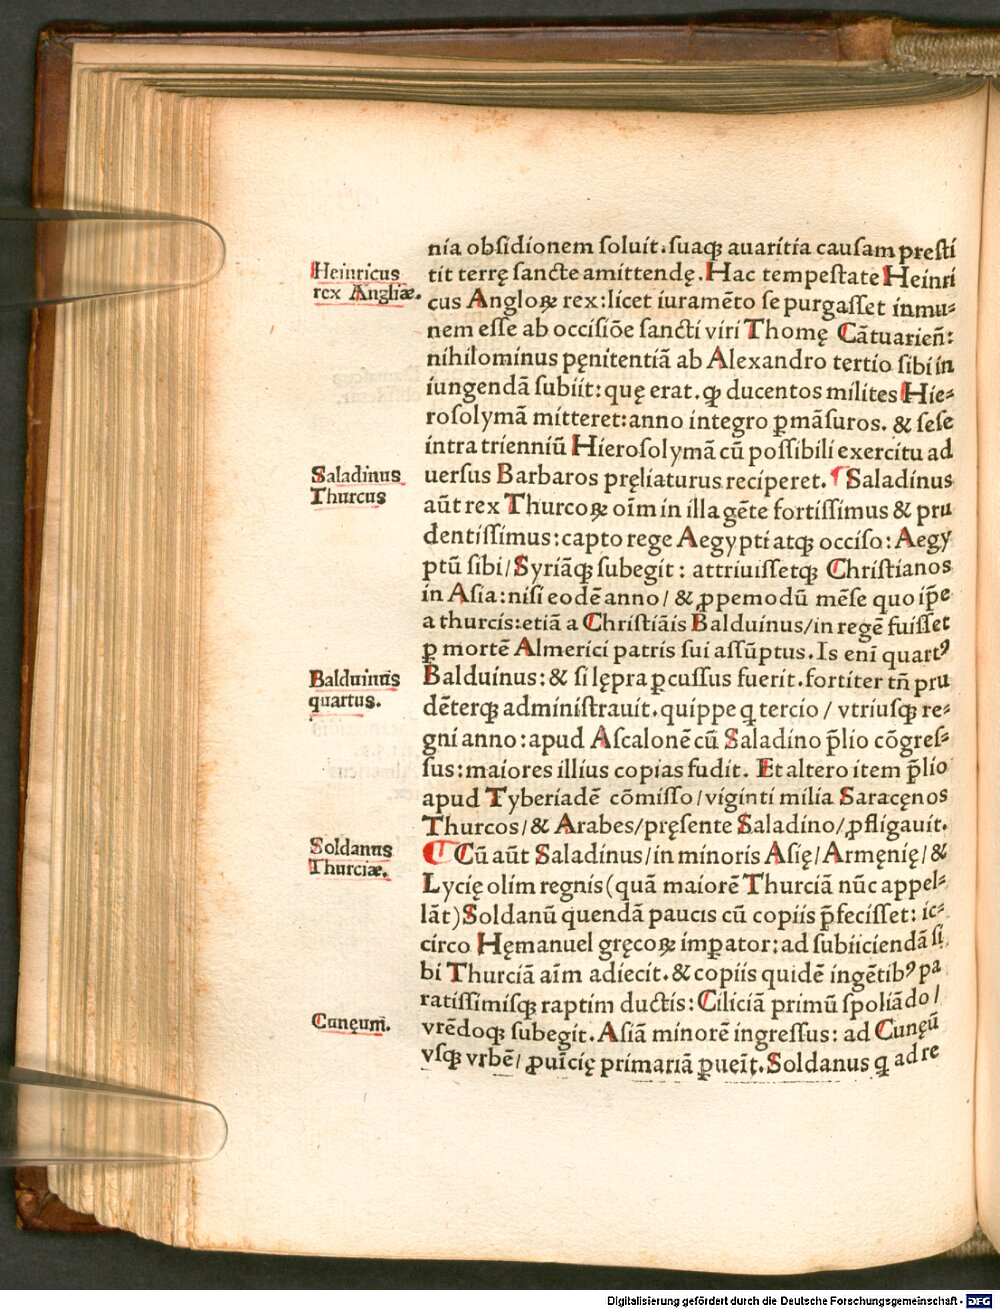 nia obsidionem soluit.suaqꝫ auaritia causam presti
tit terrę sancte amittendę.Hac tempestate Heinri
cus Angloꝝ rex:licet iuramēto se purgasset inmu⸗
nem esse ab occisiōe sancti viri Thomę Cātuarieñ:
nihilominus pęnitentiā ab Alexandro tertio sibi in
iungendā subiit:quę erat.ꝙ ducentos milites Hie⸗
rosolymā mitteret:anno integro ꝑmāsuros.& sese
intra trienniū Hierosolymā cū possibili exercitu ad
uersus Barbaros pręliaturus reciperet.¶Saladinus
aūt rex Thurcoꝝ oīm in illa gēte fortissimus & pru
dentissimus:capto rege Aegypti atqꝫ occiso:Aegy
ptū sibi/Syriāqꝫ subegit: attriuissetqꝫ Christianos
in Asia:nisi eodē anno/& ꝓpemodū mēse quo ip̄e
a thurcis:etiā a Christiāis Balduinus/in regē fuisset
ꝑ mortē Almerici patris sui assūptus.Is enī quartꝰ
Balduinus:& si lępra ꝑcussus fuerit.fortiter tn̄ pru
dēterqꝫ administrauit.quippe q tercio/vtriusqꝫ re⸗
gni anno:apud Ascalonē cū Saladino p̄lio cōgres⸗
sus:maiores illius copias fudit. Et altero item p̄lio
apud Tyberiadē cōmisso/viginti milia Saracęnos
Thurcos/& Arabes/pręsente Saladino/ꝓfligauit.
¶Cū aūt Saladinus/in minoris Asię/Armęnię/&
Lycię olim regnis(quā maiorē Thurciā nūc appel⸗
lāt)Soldanū quendā paucis cū copiis p̄fecisset: ic⸗
circo Hęmanuel gręcoꝝ impator:ad subiiciendā si
bi Thurciā aīm adiecit.& copiis quidē ingētibꝰ pa
ratissimisqꝫ raptim ductis:Ciliciā primū spoliādo/
vrēdoqꝫ subegit.Asiā minorē ingressus: ad Cunęū
vsqꝫ vrbē/ꝓuīcię primariā ꝑueīt.Soldanus q ad re
Heinricus
rex Angliæ.
Saladinus
Thurcus
Balduinus
quartus.
Soldanus
Thurciæ.
Cunęum.
Digitalisierung gefördert durch die Deutsche Forschungsgemeinschaft - DFG